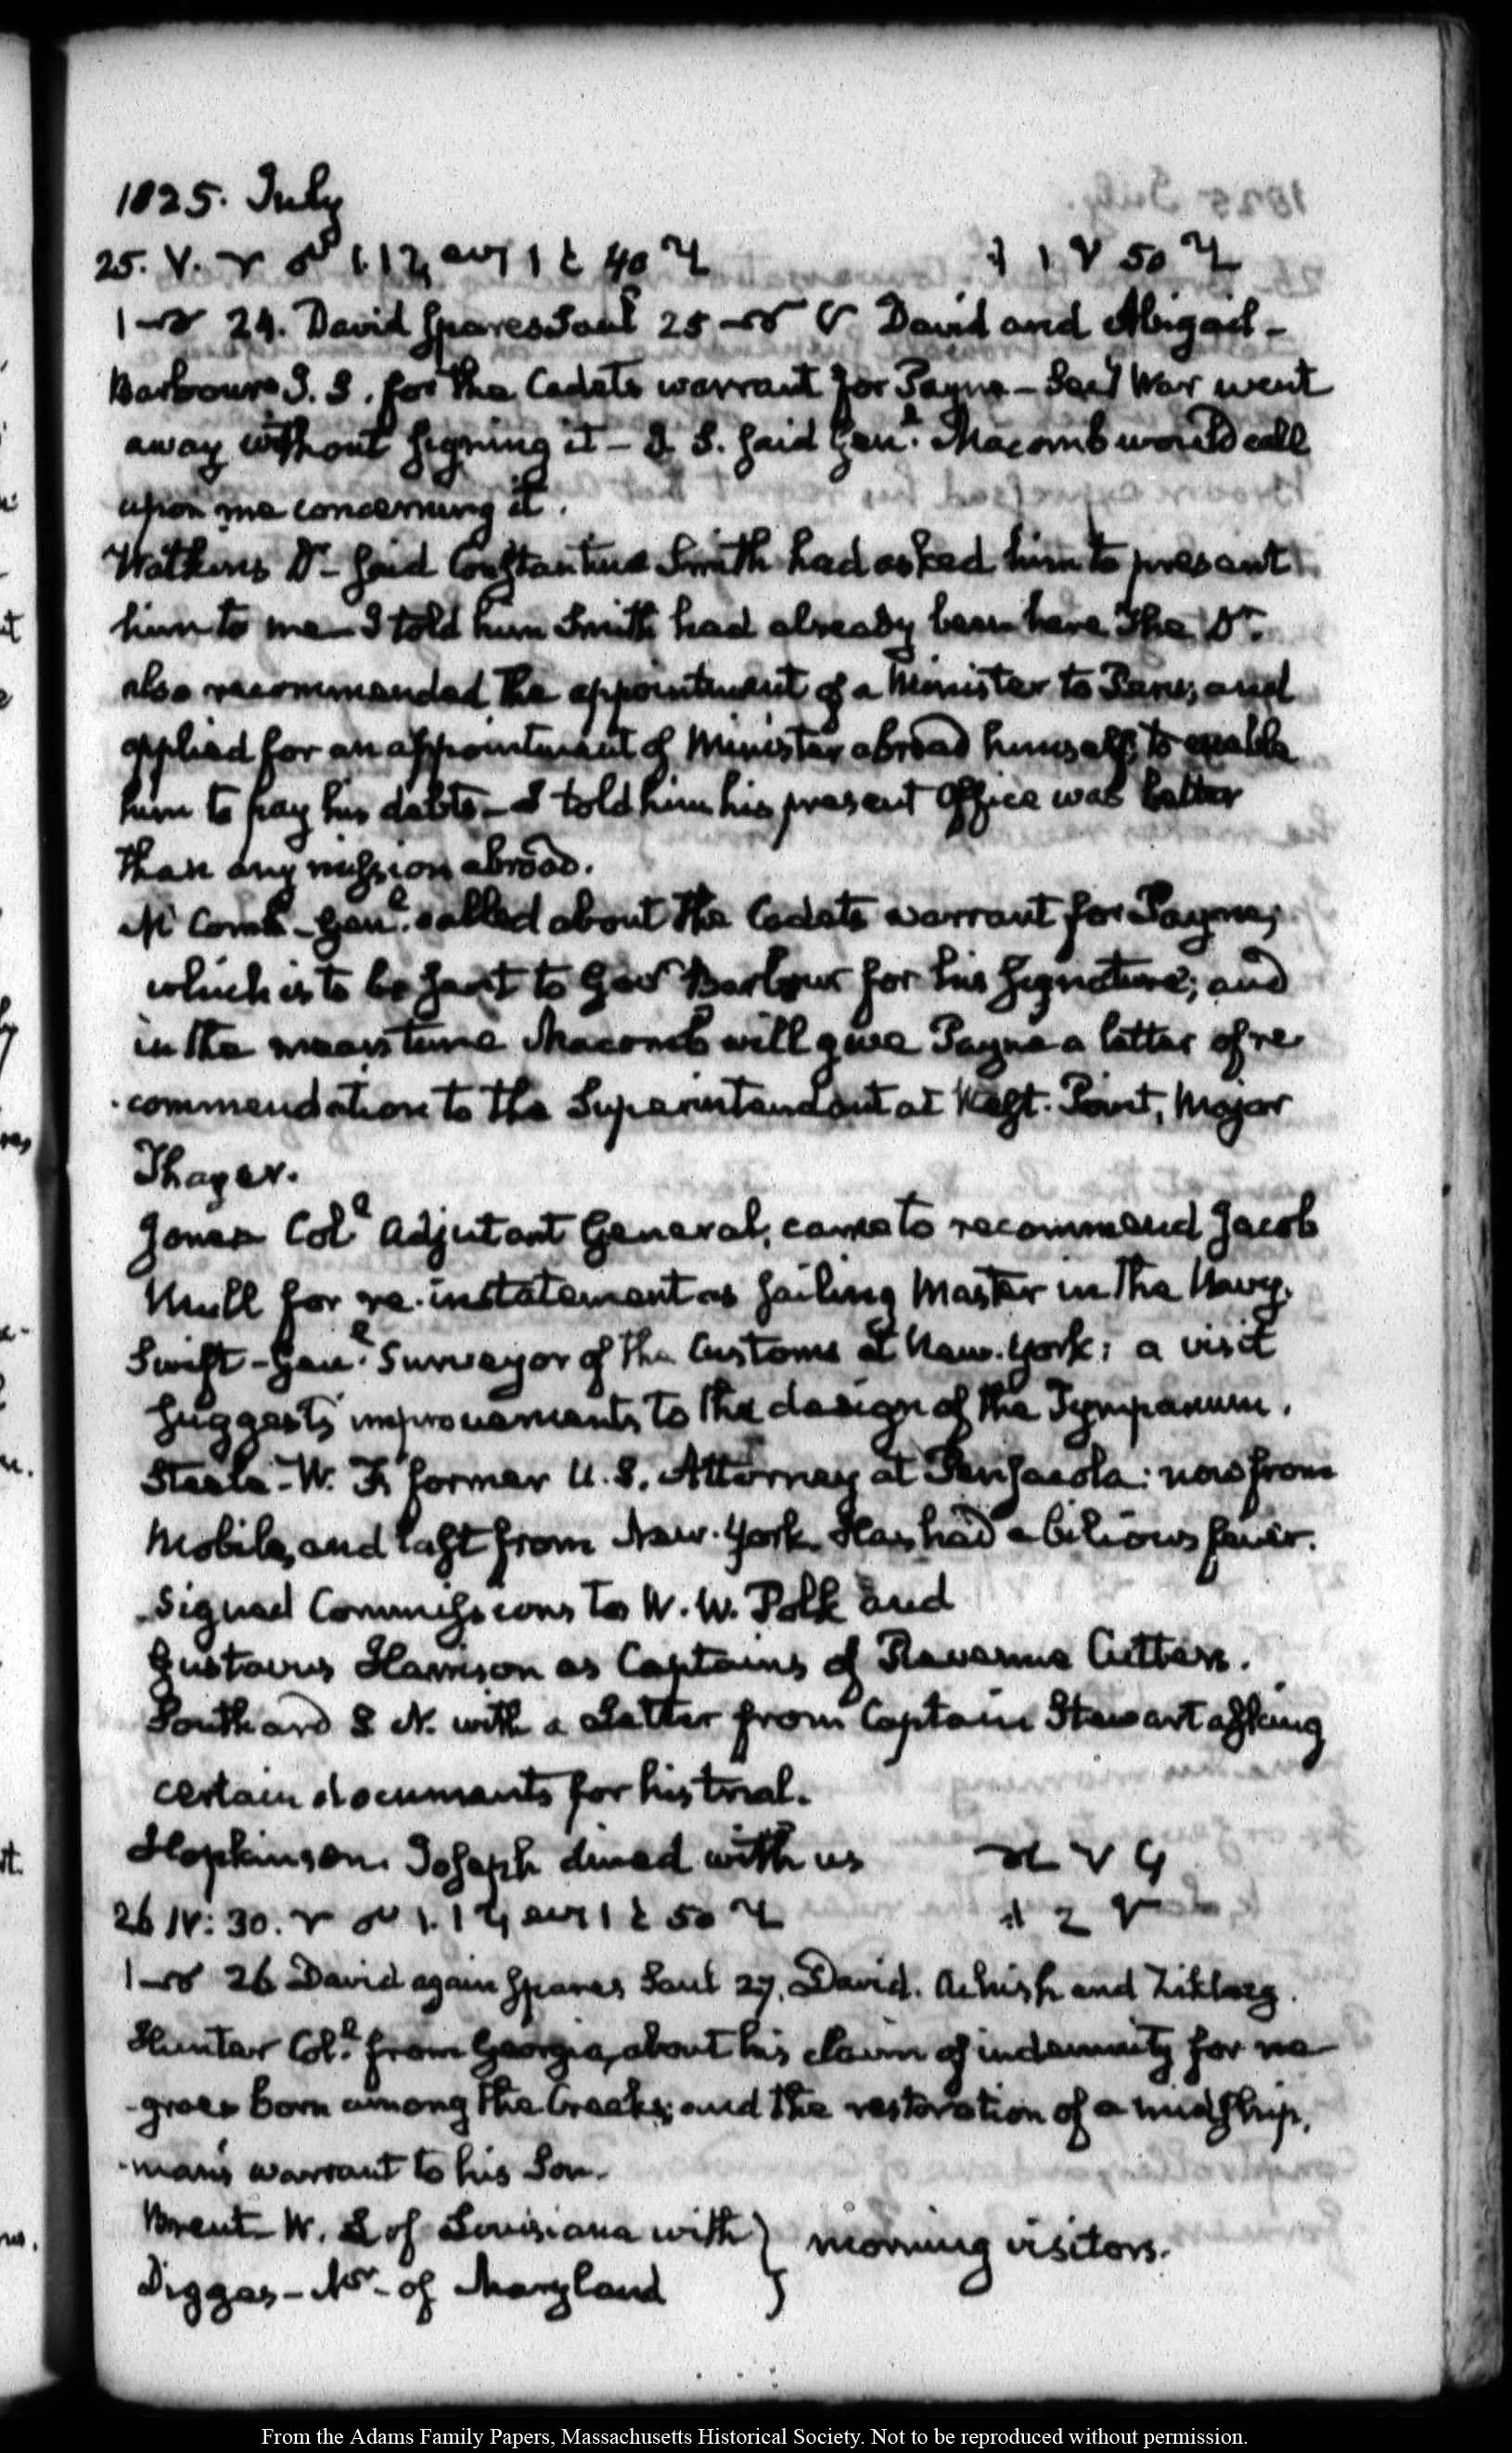 1825. July
25. V.
24. David spares Saul 25 David and Abigail—
Barbour's I. S. for the Cadets warrant for Payne — Secy War went
away without signing it — I. S. said Genl. Macomb would call
upon me concerning it.
Watkins Dr— said Constantine Smith had asked him to present
him to me— I told him Smith had already been here The Dr.
also recommended the appointment of a Minister to and
applied for an appointment of Minister abroad himself, to enable
him to pay his debts— I told him his present Office was better
than any mission abroad.
McComb— Genl. called about the Cadets warrant for Payne;
which is to be sent to Govr Barbour for his signature; and
in the mean time Macomb will give Payne a letter of re
commendation to the Superintendent at West-Point, Major
Thayer.
Jones Coll Adjutant General, came to recommend Jacob
Mull for re-instatement as Sailing Master in the Navy.
Swift— Genl. Surveyor of the Customs at New-York; a visit
suggests improvements to the design of the Tympanum.
Steele— W. F. former U. S. Attorney at Pensacola: now from
Mobile, and last from New-York. Has had a bilious fever.
Signed Commissions to W. W. Polk and
Gustavus Harrison as Captains of Revenue Cutters.
Southard S. N. with a Letter from Captain Stewart asking
certain documents for his trial.
Hopkinson. Joseph dined with us
26 IV: 30.
26 David again spares Saul 27. David. Achish and Ziklag.
Hunter Coll. from Georgia, about his claim of indemnity for ne
groes born among the Creeks; and the restoration of a midship-
man's warrant to his Son.
Brent— W. L of Louisiana with } morning visitors.
Digges— Mr— of Maryland
From the Adams Family Papers, Massachusetts Historical Society. Not to be reproduced without permission.